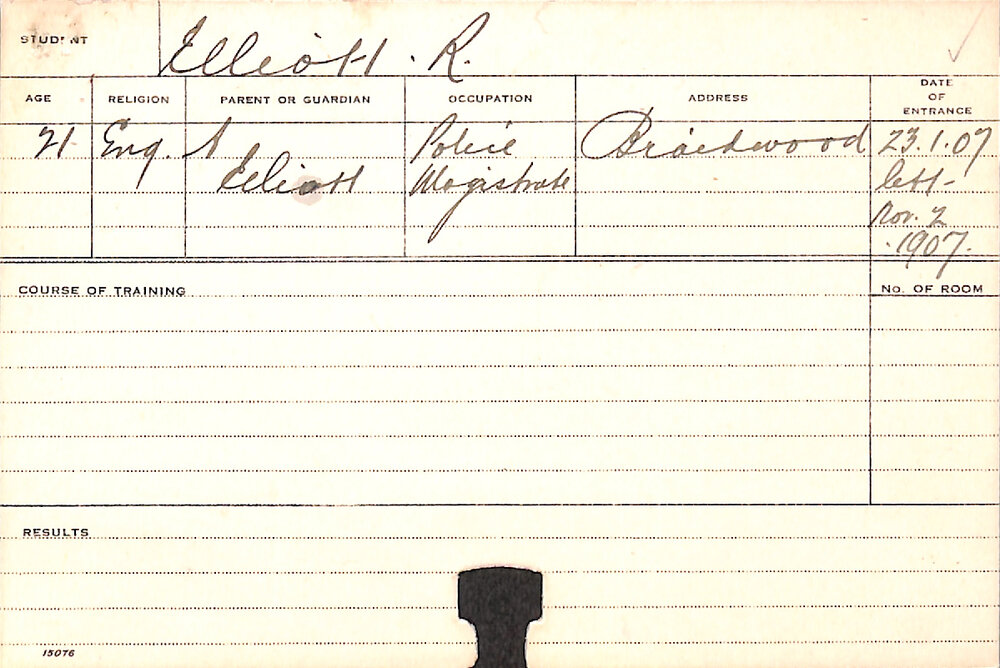 STUDENT Elliott . R.
AGE RELIGION PARENT OR GUARDIAN OCCUPATION ADDRESS DATE OF ENTRANCE
21 Eng. Police Braidwood 23.1.07
Elliott Magistrate left-
Nov. 2
.1907.
COURSE OF TRAINING No. OF ROOM
RESULTS
15076